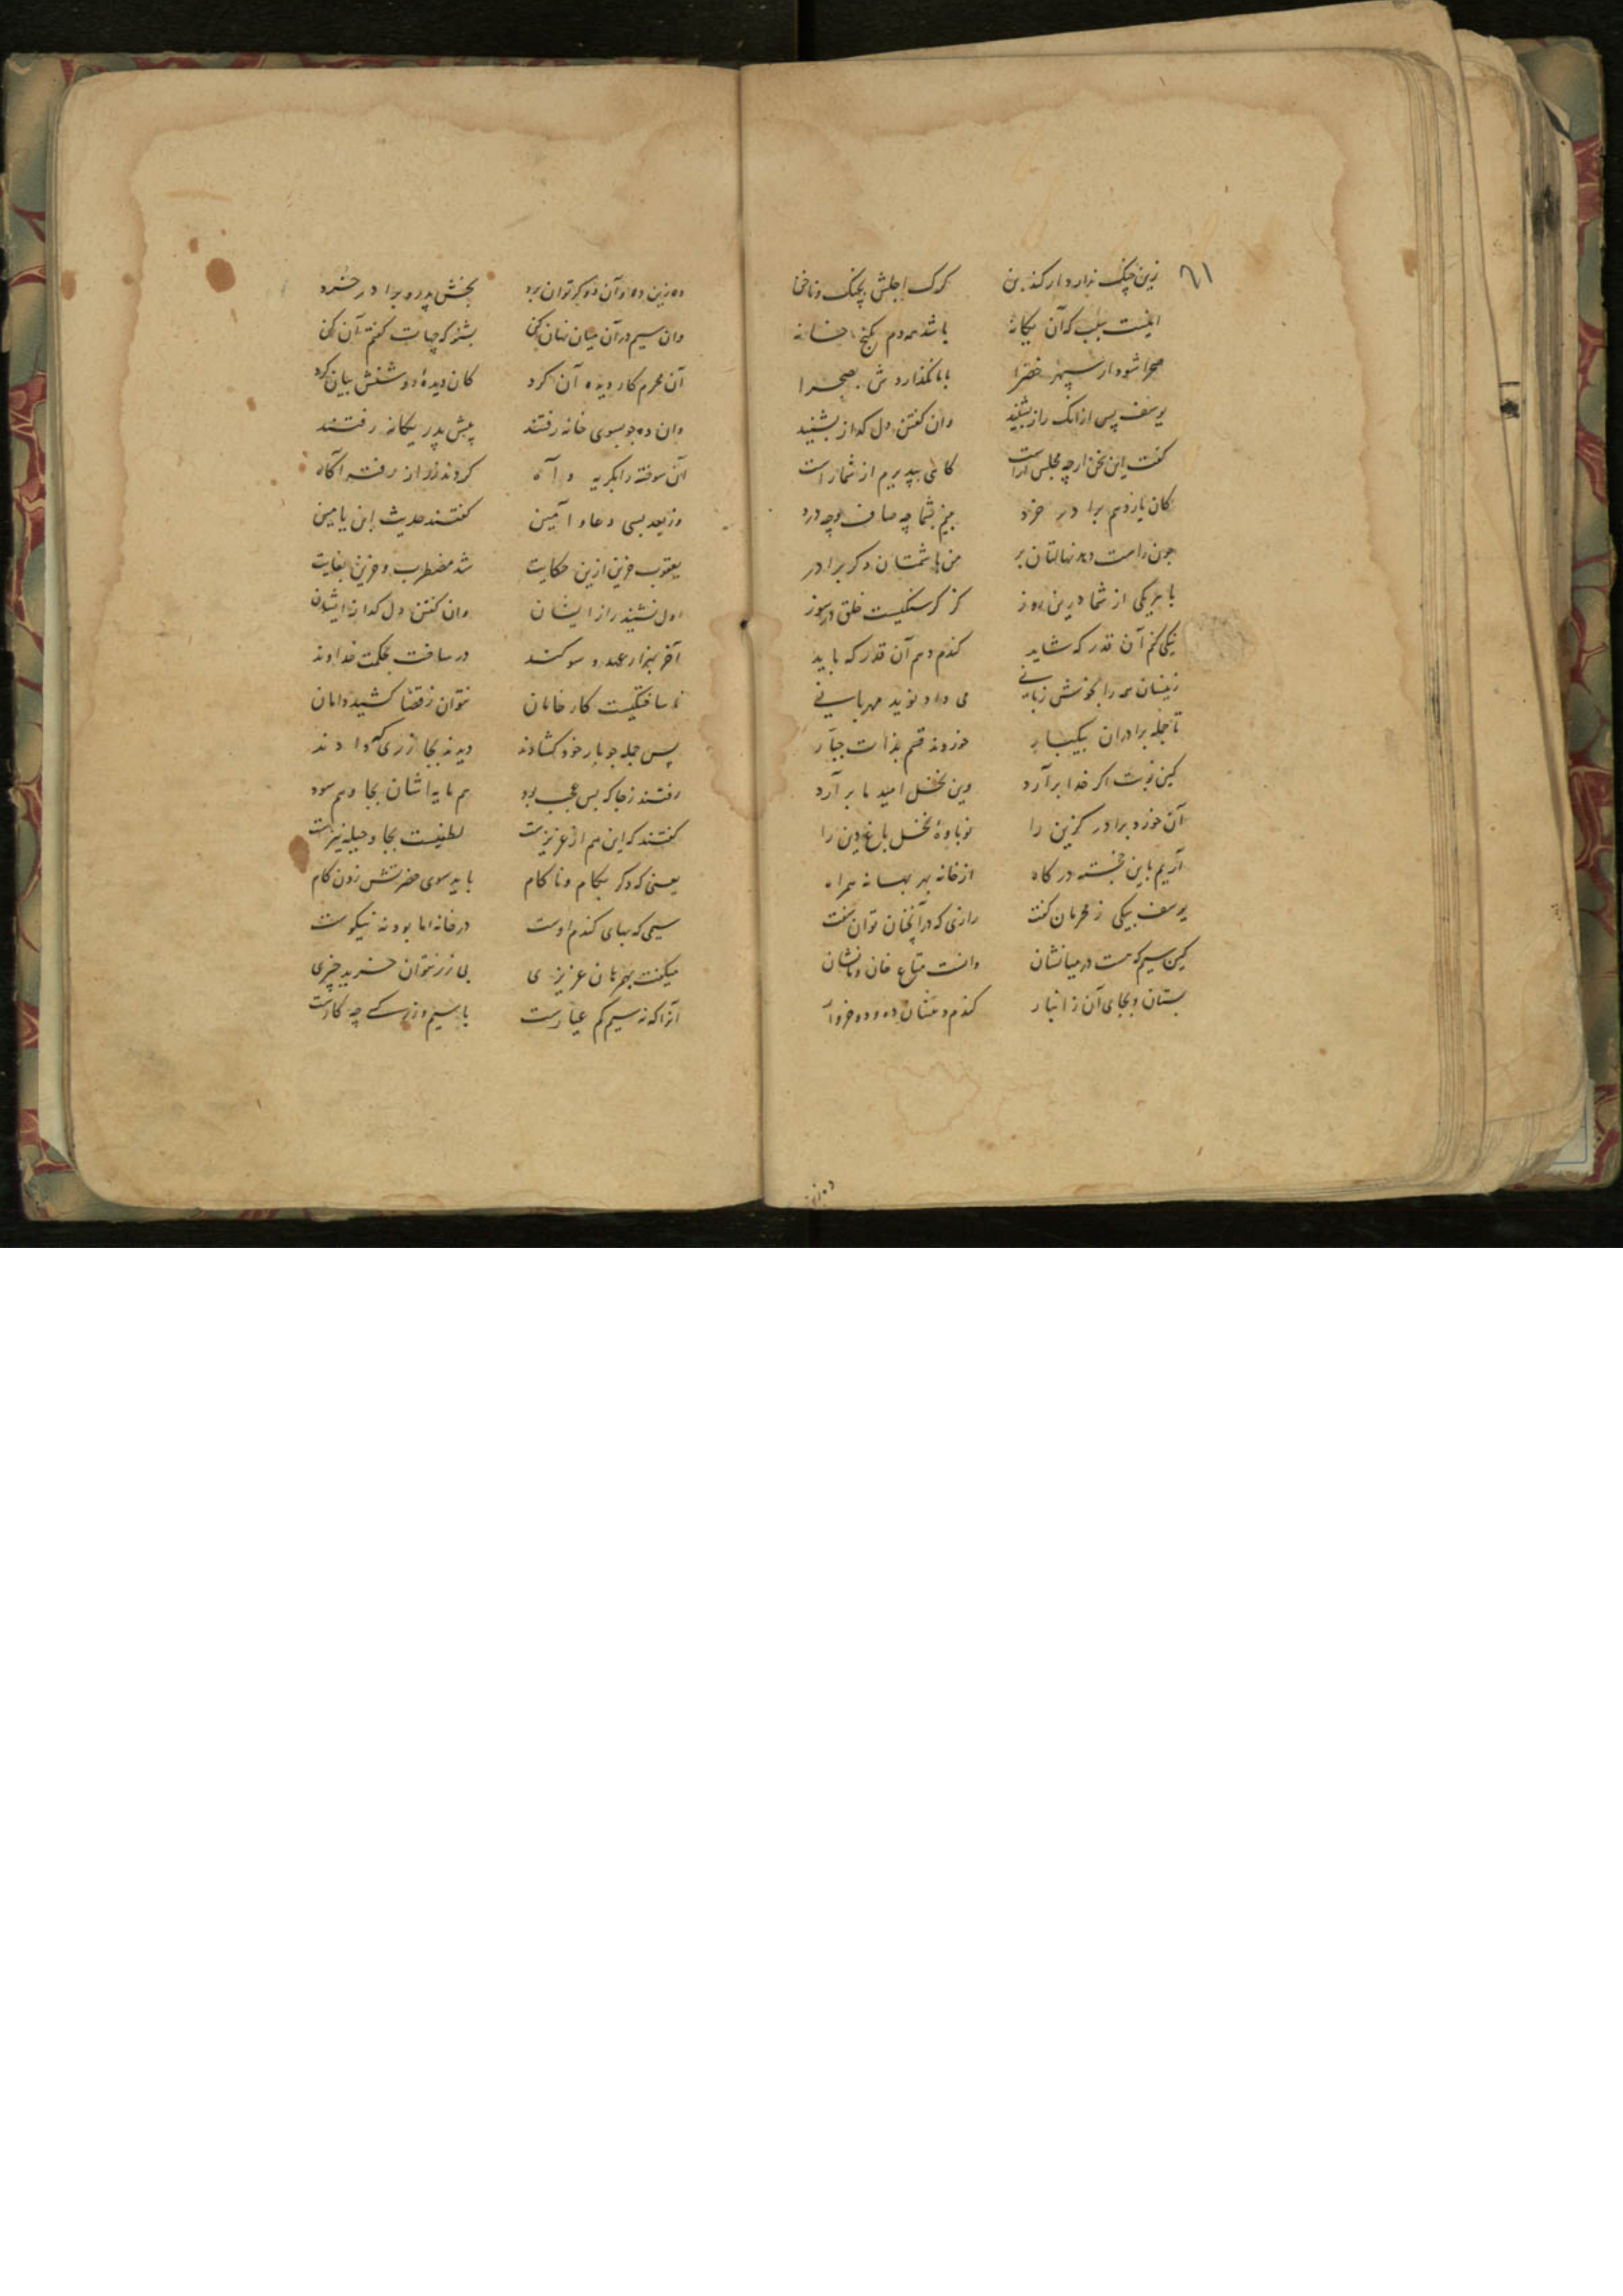 ۶۱
زین چنگ ندارد ار گذر بن گرگ اجلش بچنگ و ناخن
اینست سبب که آن یگانه باشد همه دم بکنج خانه
صحرا شود ار سپهر خضرا بابا نگذاردش بصحرا
یوسف پس ازانک راز بشنید وان گفتن دل گداز بشنید
گفت این سخن ارچه مجلس آراست کی بپذیرم از شما راست
کان یازدهم برادر خرد بینم بشما چه صاف و چه درد
چون راست دهد نهالتان بر من باشمتان دگر برادر
با هر یکی از شما درین روز کز گرسنگیست خلق در سوز
نیکی کنم آن قدر که شاید گندم دهم آن قدر که باید
زینسان همه را بخوش زبانی می داد نوید مهربانی
تا جمله برادران بیکبار خوردند قسم بذات جبار
کین نوبت اگر خدا برآرد وین نخل امید ما بر آرد
آن خورد برادر گزین را نوباوهٔ نخل باغ دین را
آریم باین خجسته درگاه از خانه بهر بهانه همراه
یوسف بیکی ز محرمان گفت رازی که در آنچنان توان سفت
کین سیم که هست در میانشان وانست متاع خان و مانشان
بستان و بجای آن ز انبار گندم دهشان ده و دو خروار
ده زین ده و آن دو کر توان برد بخش پدر و برادر خرد
وان سیم در آن میان نهان کن بشنو که چهات گفتم آن کن
آن محرم کار دیده آن کرد کان دیدهٔ روشنش بیان کرد
وان ده چو بسوی خانه رفتند پیش پدر یگانه رفتند
آن سوخته را بگریه و آه کردند ز راز رفته آگاه
وز بعد بسی دعا و آمین گفتند حدیث ابن یامین
یعقوب حزین ازین حکایت شد مضطرب و حزین بغایت
اول نشنید راز ایشان وان گفتن دل گداز ایشان
آخر بهزار عهد و سوگند در ساخت بحکمت خداوند
ساختگیست کار خامان نتوان ز قضا کشید دامان
پس جمله چو بار خود گشادند دیدند بجا زری که دادند
رفتند ز جا که بس عجب بود هم مایه اشان بجا و هم سود
گفتند که این هم از عزیزست لطفیست بجا و حیله نیزست
یعنی که دگر بکام و ناکام باید سوی حضرتش زدن گام
سیمی که بهای گندم اوست در خانه ما بود نه نیکوست
میگفت بهر زمان عزیزی بی زر نتوان خرید چیزی
آنرا که نه سیم کم عیارست با سیم و زر کسی چه کارست